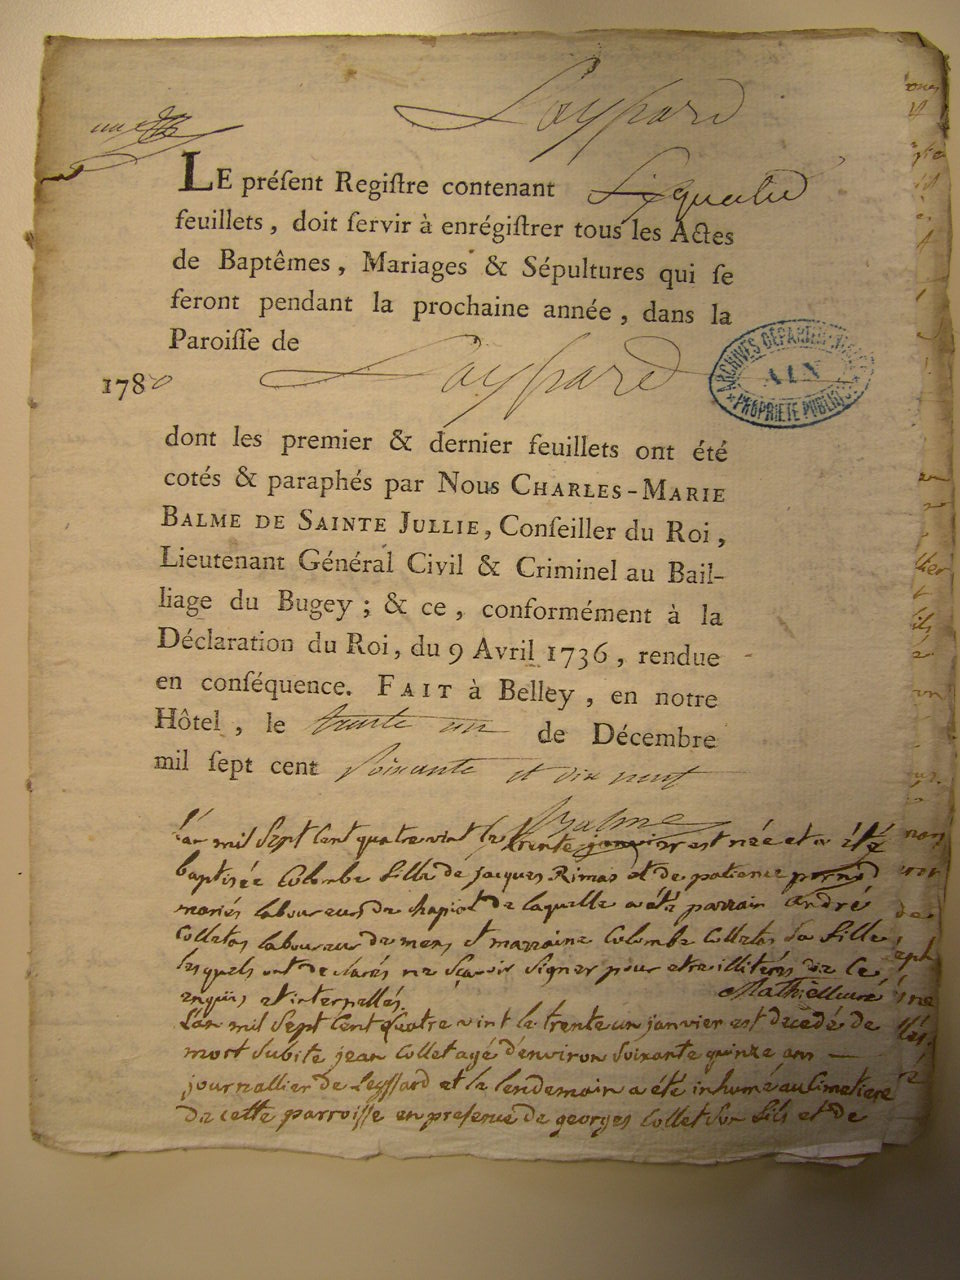 Leyssard
LE préſent Regiſtre contenant Six
feuillets, doit ſervir à enrégiſtrer tous les Actes
de Baptêmes, Mariages & Sépultures qui ſe
feront pendant la prochaine année, dans la
Paroiſſe de
1780 Leyssard
ARCHIVES DÉPARTEMENTALES
AIN
PROPRIÉTÉ PUBLIQUE
dont les premier & dernier feuillets ont été
cotés & paraphés par Nous CHARLES-MARIE
BALME DE SAINTE JULLIE, Conſeiller du Roi,
Lieutenant Général Civil & Criminel au Bail-
liage du Bugey; & ce, conformément à la
Déclaration du Roi, du 9 Avril 1736, rendue
en conſéquence. FAIT à Belley, en notre
Hôtel, le trente un de Décembre
mil ſept cent soixante et dix neuf
Balme
L'an mil Sept Cent quatre vint le trente janvier est née et a été
baptisée Colombe fille de jacques Rimas et de patience
mariés laboureurs de Chapiot de laquelle a été parrain André
Colletas laboureur de mens et marraine Colombe Colletas Sa fille
lesquels ont declarés ne Sçavoir Signer pour etre illiterés de ce
enquis et interpellés. Mathieu curé
L'an mil Sept Cent Quatre vint le trente un janvier est decedé de
mort Subite jean Collet agé d'environ Soixante quinze ans
journallier de Leyssard et le lendemain a été inhumé au Cimetiere
de cette parroisse en presence de georges Collet Son fils et de